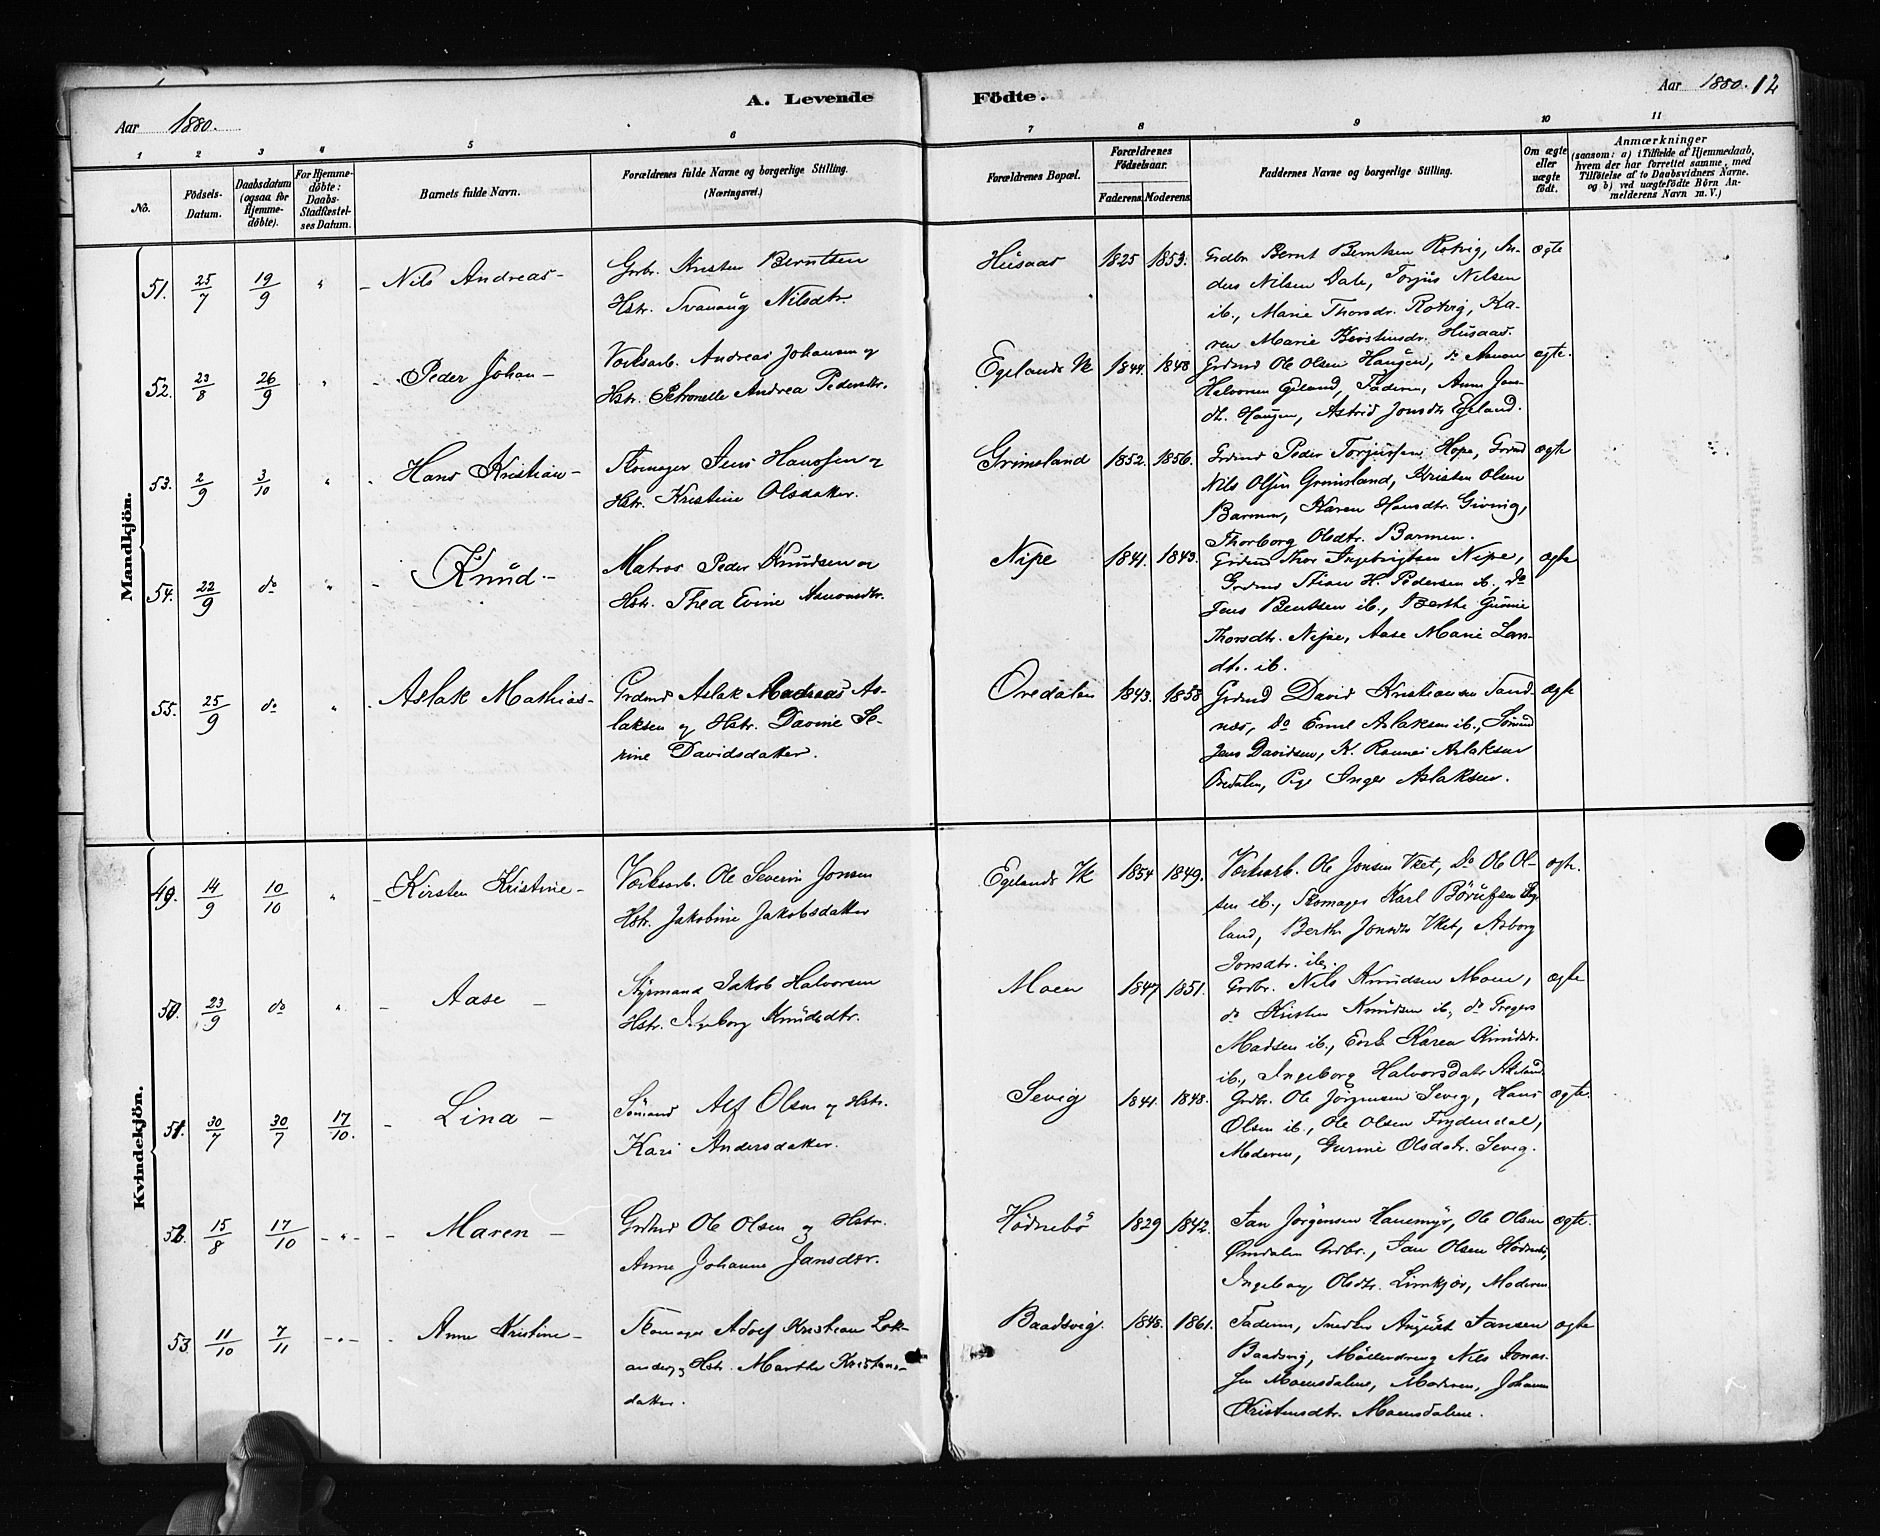 A. Levende Födte.
Aar 1880.
Aar 1880. 12
1 2 3 4 5 6 7 8 9 10 11
No.
Födsels-
Datum.
Daabsdatum
(ogsaa for
Hjemme-
döbte).
For Hjemme-
döbte:
Daabs-
Stadfæstel-
ses Datum.
Barnets fulde Navn.
Forældrenes fulde Navne og borgerlige Stilling.
(Næringsvei.)
Forældrenes Bopæl.
Forældrenes
Födselsaar.
Faderens. Moderens.
Faddernes Navne og borgerlige Stilling.
Om ægte
eller
uægte
födt.
Anmærkninger
(saasom: a) i Tilfælde af Hjemmedaab,
hvem der har forrettet samme, med
Tilföielse af to Daabsvidners Navne.
og b) ved uægtefödte Börn An-
melderens Navn m. V.)
Mandkjön.
51. 25/7 19/9 " - Nils Andreas-
Grbr. Kristen Berntsen
Hstr. Svanaug Nilsdtr.
Husaas 1825 1853.
Grdbr Bernt Berntsen Rotvig, An-
ders Nilsen Dale, Torjus Nilsen
ib., Marie Thorsdr. Rotvig, Ka-
ren Marie Kristensdr. Husaas.
ægte
52. 23/8 26/9 " - Peder Johan-
Værksarb. Andreas Johansen og
Hstr. Petronelle Andrea Pedersdtr.
Egelands Vk 1844. 1848
Grdmd Ole Olsen Haugen, do Aanon
Halvorsen Egeland, Faderen, Anne Jons-
dt. Haugen, Astrid Jonsdtr Egeland.
ægte.
53. 2/9 3/10 " - Hans Kristian-
Skomager Jens Hanssen og
Hstr. Kristine Olsdatter.
Grimsland 1852. 1856.
Grdmd Peder Torjussen Hope, Grdmd
Nils Olsen Grimsland, Kristen Olsen
Barmen, Karen Hansdtr. Giving,
Thorborg Olsdtr. Barmen.
ægte
54. 22/9 do " - Knud.-
Matros Peder Knudsen og
Hstr. Thea Evine Aanonsdtr.
Nipe 1841. 1843.
Grdmd Thor Ingebrigtsen Nipe,
Grdmd Stian H. Pedersen ib, do
Jens Bentsen ib., Berthe Gunnie
Thorsdtr. Nipe, Aase Marie Lars-
dtr. ib.
ægte
55. 25/9 do " - Aslak Mathias-
Grdmd Aslak Andreas As-
laksen og Hstr. Davine Se-
rine Davidsdatter.
Oredalen 1843. 1858
Grdmd David Kristiansen Sand-
næs, do Emil Aslaksen ib., Sömnd
Jens Davidsen, K. Rannei Aslaksen
Oredalen, Pige Inger Aslaksen.
ægte
Kvindekjön.
49. 14/9 10/10 " - Kirsten Kristine-
Værksarb. Ole Severin Jonsen
Hstr. Jakobine Jakobsdatter
Egelands Vk 1854 1849.
Værksarb. Ole Jonsen Vket, Do Ole Ol-
sen ib., Skomager Karl Börufsen Eg-
land, Berthe Jonsdtr Vket, Asborg
Jonsdtr. ib.
ægte.
50. 23/9 do " - Aase -
Styrmand Jakob Halvorsen
Hstr. Ingeborg Knudsdtr.
Moen 1847 1851.
Grdbr. Nils Knudsen Moen,
do Kristen Knudsen ib, do Gregers
Madsen ib., Enk. Karen Knudsdr.
ib., Ingeborg Halvorsdatr Akeland.
ægte
51. 30/7 30/7 17/10. - Lina -
Sömand Alf Olsen og Hstr.
Kari Andersdatter.
Sevig 1841. 1848.
Grdbr. Ole Jörgensen Sevig, Hans
Olsen ib., Ole Olsen Frydendal,
Moderen, Gurine Olsdatr. Sevig.
ægte.
52. 15/8 17/10 - " - - Maren -
Grdmd Ole Olsen og Hstr.
Anne Johanne Jansdtr.
Hödnebö 1829 1842.
Jan Jörgensen Hanemyr, Ole Olsen
Ömdalen Grdbr., Jan Olsen Hödnebö,
Ingeborg Olsdtr. Limkjær, Moderen
ægte.
53. 11/10 7/11 - " - - Anne Kristine-
Skomager Adolf Kristian Lok-
ander og Hstr. Marthe Kristens-
datter.
Baadsvig. 1848. 1861.
Faderen, Snedker August Jansen
Baadsvig, Mölledreng Nils Jonas-
sen Moensdalene, Moderen, Johanne
Kristensdtr. Moensdalene.
ægte